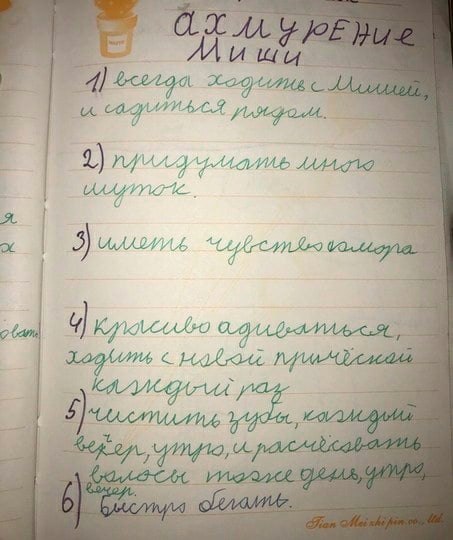 АХМУРЕНИЕ
МИШИ
1) всегда ходить с Мишей,
и садиться рядом.
2) придумать много
шуток.
3) иметь чувство юмора
4) красиво адиваться,
ходить с новой причёской
каждый раз
5) чистить зубы, каждый
вечер, утро, и расчёсовать
волосы тоже день, утро,
вечер.
6) Быстро бегать.
я
х
овать
Tian Mei zhi pin co., ltd.